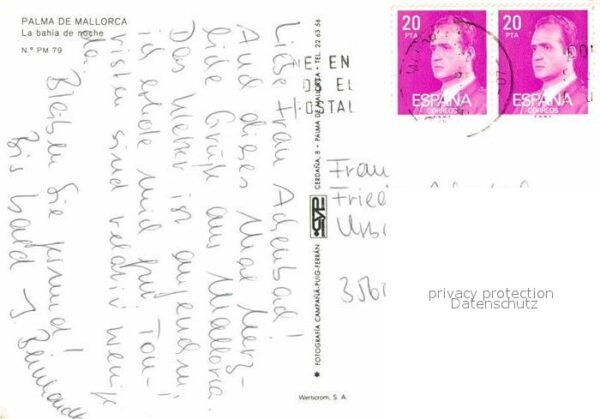 PALMA DE MALLORCA
La bahia de noche
N.° PM 79
Liebe Frau Achenbach!
Auch dieses Mal herz-
liche Grüße aus Mallorca.
Das Wetter ist angenehm,
ich erhole mich gut. Tou-
risten sind relativ wenige
da.
Bleiben Sie gesund!
Bis bald
CYP
FOTOGRAFIA CAMPAÑÁ-PUIG-FERRÁN
CERDAÑA, 8 - PALMA DE MALLORCA - TEL. 22 63 56
Wertocrom, S. A.
EN
EL
POSTAL
20
PTA
ESPAÑA
CORREOS
20
PTA
ESPAÑA
CORREOS
Frau
privacy protection
Datenschutz